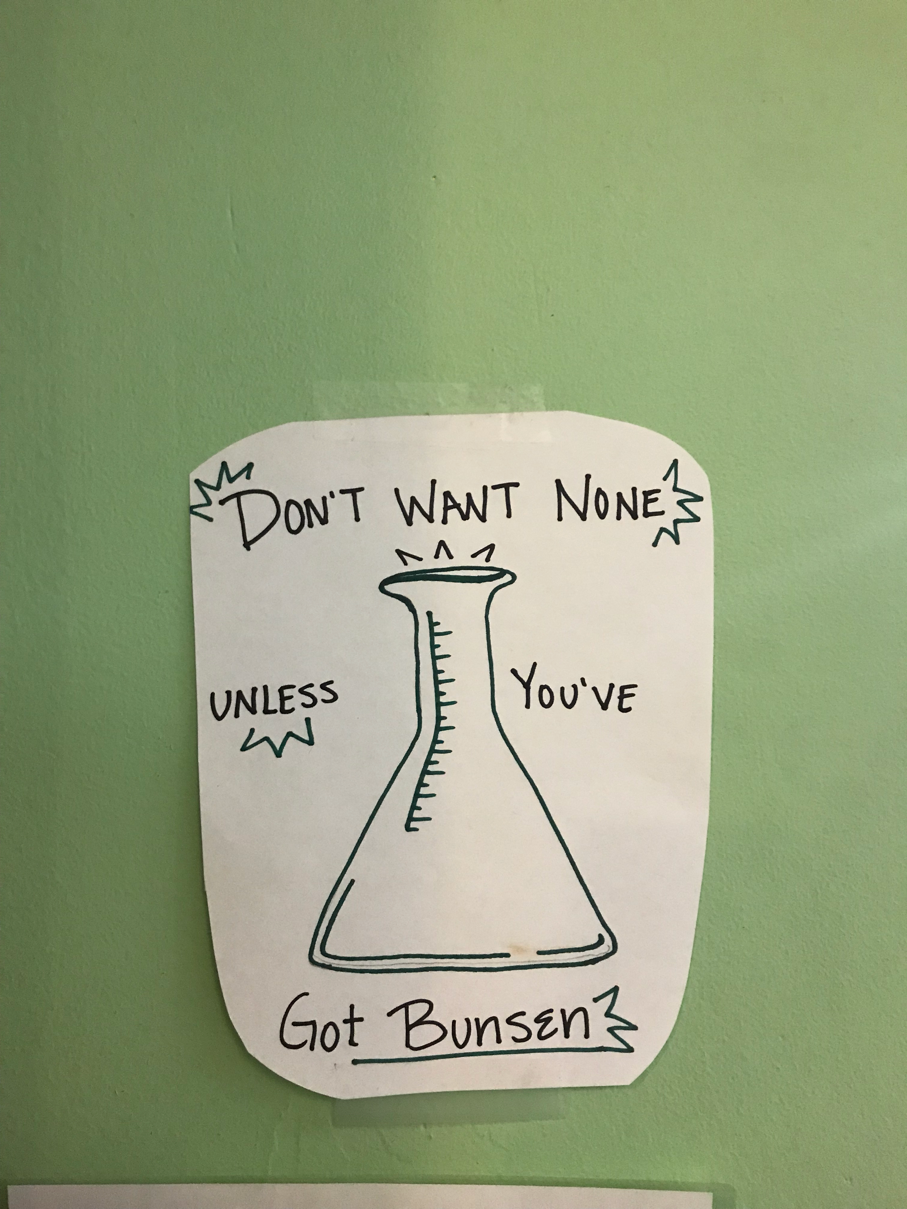 DON'T WANT NONE
UNLESS YOU'VE
Got Bunsen